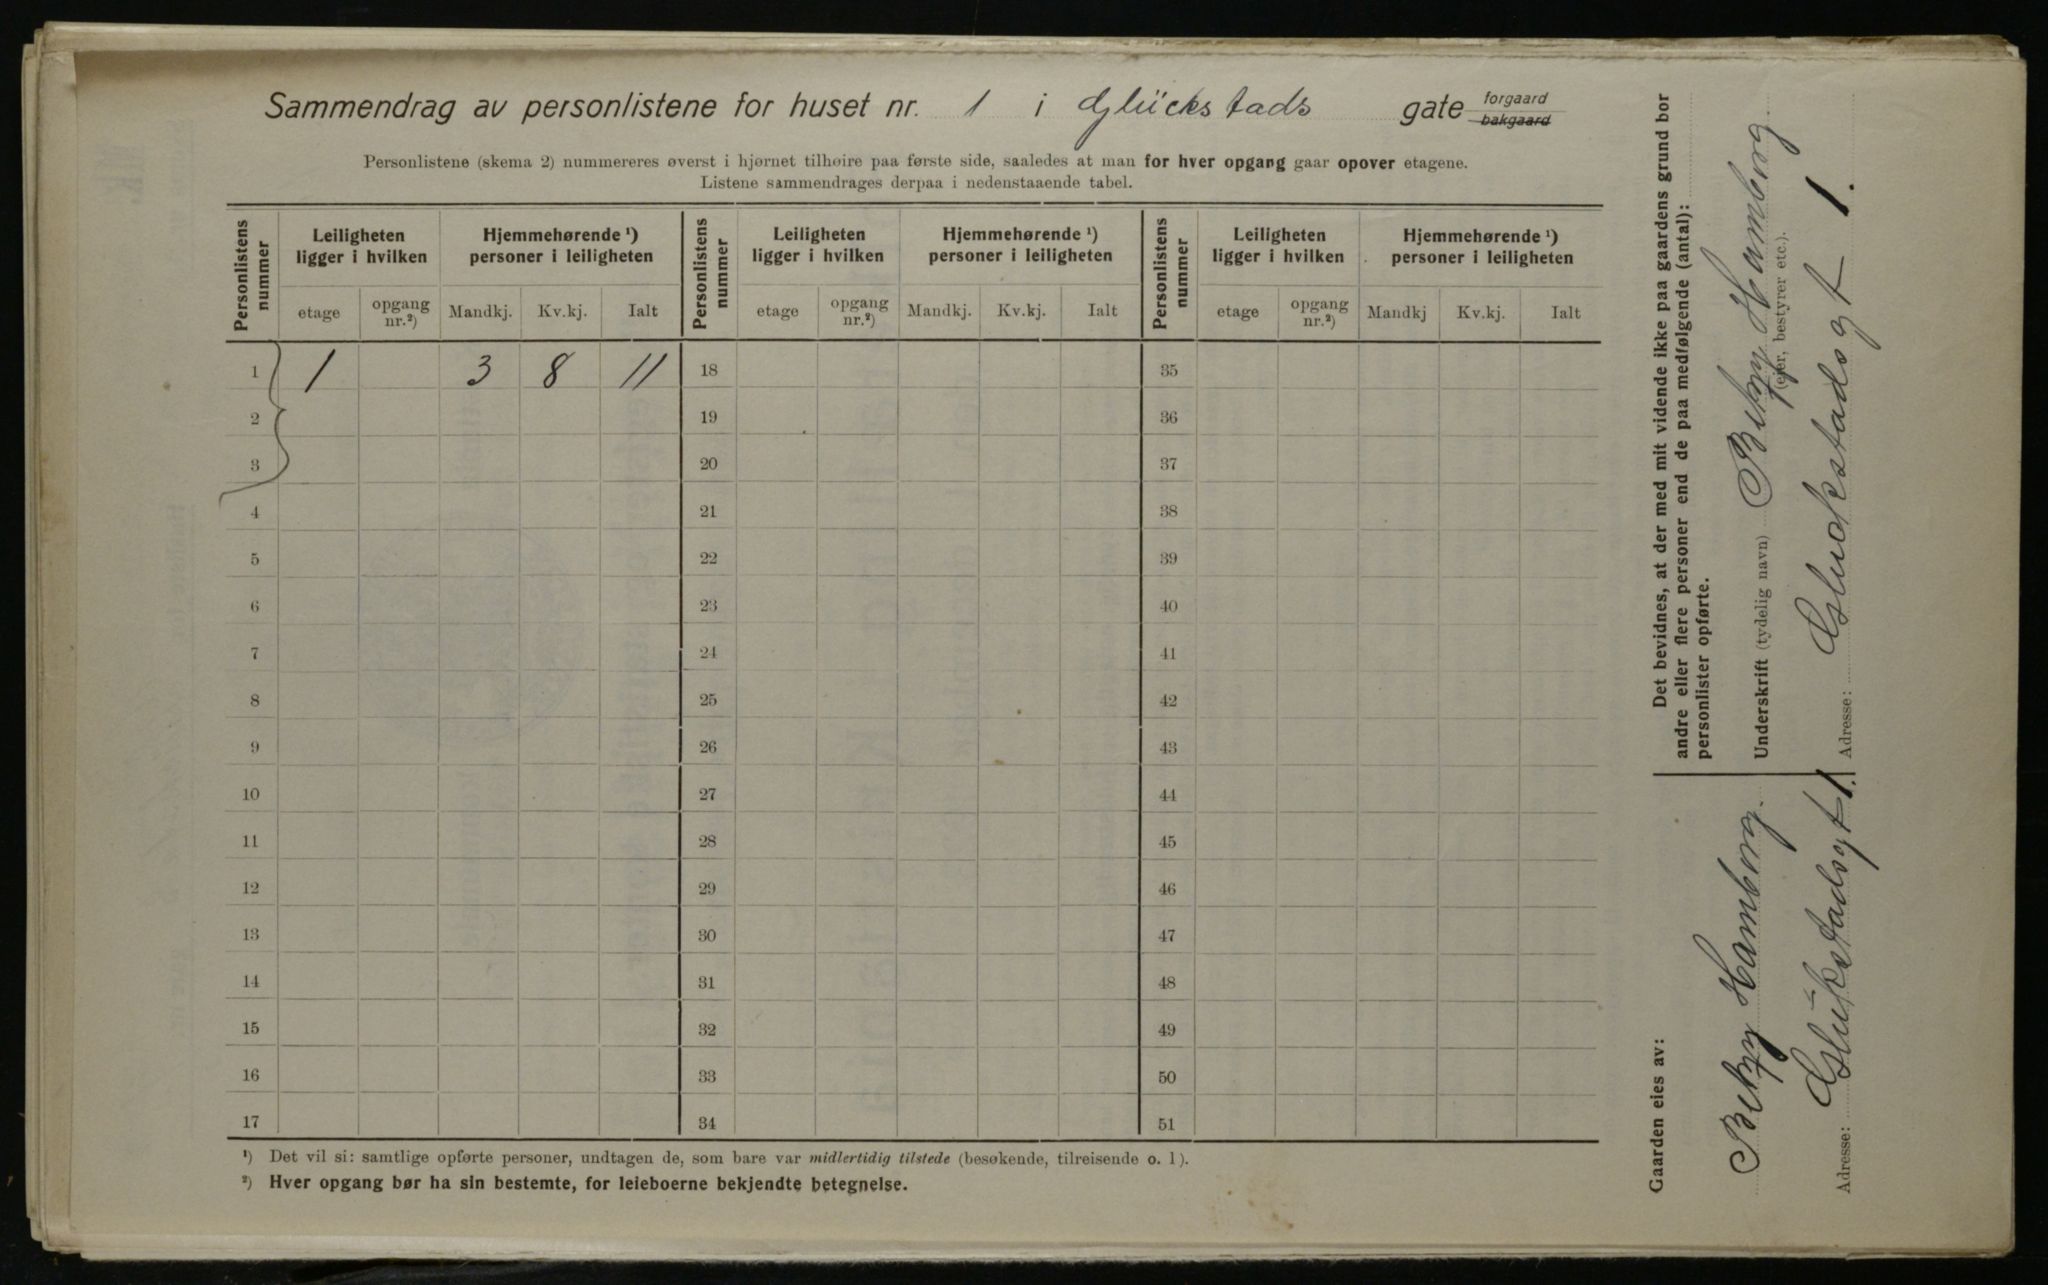 Sammendrag av personlistene for huset nr. 1 i Glückstads gate forgaard bakgaard
Personlistene (skema 2) nummereres øverst i hjørnet tilhøire paa første side, saaledes at man for hver opgang gaar opover etagene.
Listene sammendrages derpaa i nedenstaaende tabel.
Personlistens nummer
Leiligheten ligger i hvilken
Hjemmehørende ¹) personer i leiligheten
Personlistens nummer
Leiligheten ligger i hvilken
Hjemmehørende ¹) personer i leiligheten
Personlistens nummer
Leiligheten ligger i hvilken
Hjemmehørende ¹) personer i leiligheten
etage opgang nr.²) Mandkj. Kv.kj. Ialt etage opgang nr.²) Mandkj. Kv.kj. Ialt etage opgang nr.²) Mandkj Kv.kj. Ialt
1 1 3 8 11 18 35
2 19 36
3 20 37
4 21 38
5 22 39
6 23 40
7 24 41
8 25 42
9 26 43
10 27 44
11 28 45
12 29 46
13 30 47
14 31 48
15 32 49
16 33 50
17 34 51
¹) Det vil si: samtlige opførte personer, undtagen de, som bare var midlertidig tilstede (besøkende, tilreisende o. l).
²) Hver opgang bør ha sin bestemte, for leieboerne bekjendte betegnelse.
Gaarden eies av:
Betzy Hamborg.
Adresse: Glückstadsgt 1.
Det bevidnes, at der med mit vidende ikke paa gaardens grund bor
andre eller flere personer end de paa medfølgende (antal):
personlister opførte.
Underskrift (tydelig navn) Betzy Hamborg.
(eier, bestyrer etc.).
Adresse: Gluckstadsgt 1.